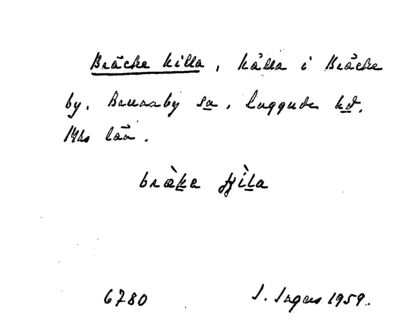 Bräcke killa, källa i Bräcke
by, Brunnby sn, Luggude hd,
Mhs län.
bräka ʃjila
6780 I. Ingers 1959.